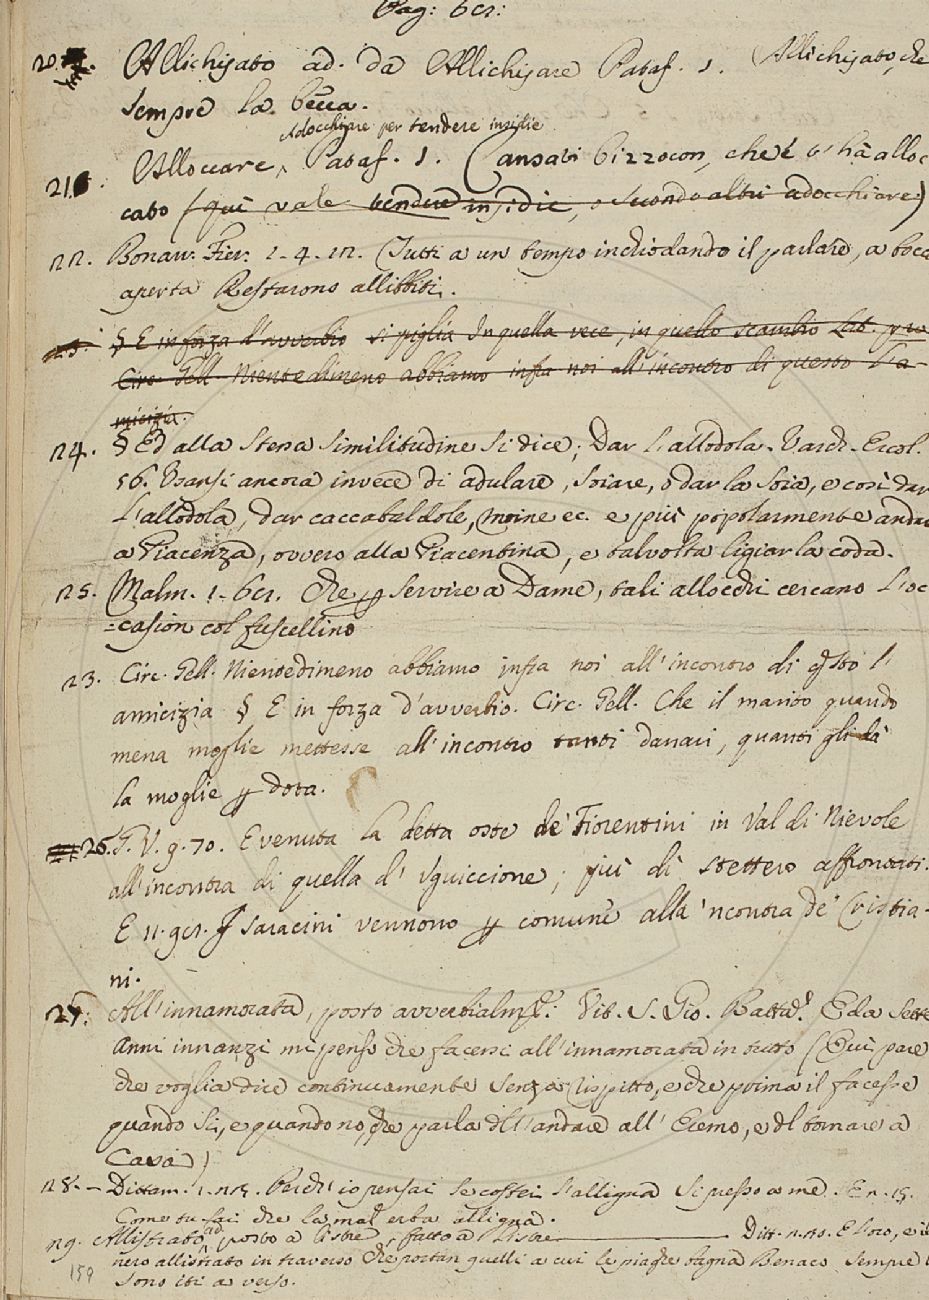 Pag: 62:
20. Allichisato ad. da Allichisare Pataf. 1. Allichisato, che
sempre la becca.
Adocchiare per tendere insidie
21. Alloccare, Pataf. 1. Cansati bizzocon, che i' t' hà alloc
cato (qui vale tendere insidie, o secondo altri adocchiare)
22. Bonarr. Fier. 2. 4. 12. Tutti a un tempo inchiodando il parlare, a bocca
aperta Restarono allibbiti.
§ E in forza d'avverbio si piglia In quella vece, in quello scambio Lat.
Circ. Gell. Nientedimeno abbiamo infra noi all'incontro di questo l'a-
micizia.
24. § Ed alla stessa similitudine si dice; Dar l'allodola. Varch. Ercol.
56. Usansi ancora invece di adulare, soiare, o dar la soia, e così dar
l'allodola, dar caccabaldole, moine ec. e più popolarmente andar
a Piacenza, ovvero alla Piacentina, e talvolta ligiar la coda.
25. Malm. 1. 62. Che p servire a Dame, tali allocchi cercano l'oc
=casion col fuscellino
23. Circ. Gell. Nientedimeno abbiamo infra noi all'incontro di qsto l'
amicizia § E in forza d'avverbio. Circ. Gell. Che il marito quando
mena moglie mettesse all'incontro tanti danari, quanti gli dà
la moglie p dota.
26. G. V. 9. 70. E venuta la detta oste de' Fiorentini in Val di Nievole
all'incontra di quella d' Uguiccione, più dì stettero affrontati.
E 11. 92. I Saracini vennono p comune alla 'ncontra de' Cristia-
ni.
27. All'innamorata, posto avverbialmte. Vit. S. Gio. Batta. E da sette
anni innanzi mi penso che facessi all'innamorata in tutto (Qui pare
che voglia dire continuamente senza rispitto, e che prima il facesse
quando sì, e quando no, che parla dell'andare all' Eremo, e del tornare a
Casa)
28. - Dittam. 1. Perch' io pensai se costei s'alligna Sì presso a me. E 2. 15.
Come tu sai che la mal' erba alligna.
29. Allistrato ad. posto a listre, fatto a listre Ditt. E loro, e il
nero allistrato in traverso Che portan quelli a cui le piagge bagna Benaco sempre
sono iti a verso.
159